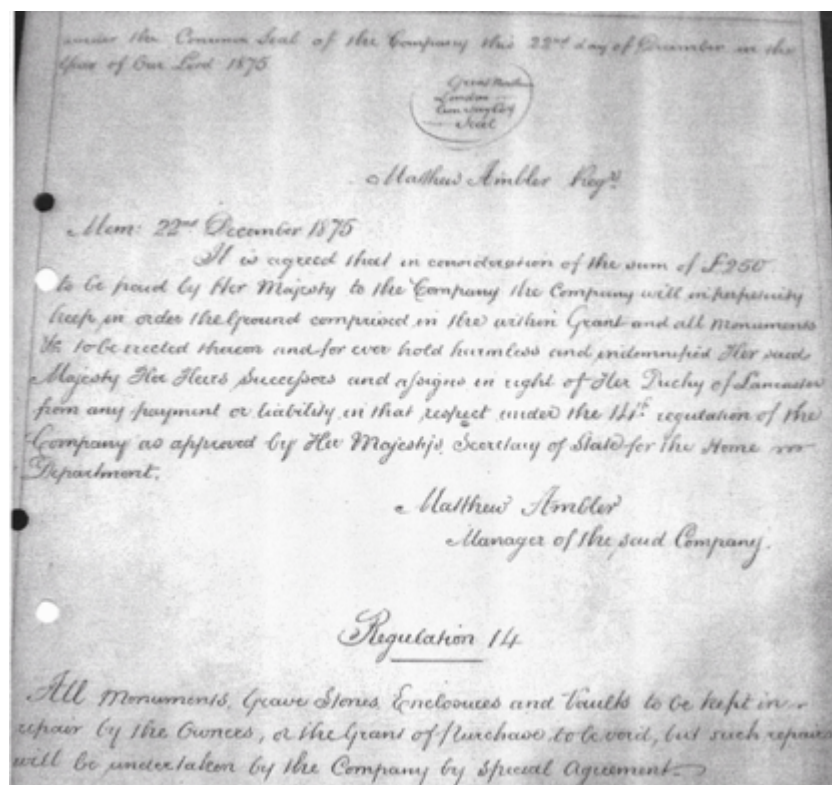 under the Common Seal of the Company this 22nd day of December in the
Year of Our Lord 1875
Great
London
Seal
Matthew Ambler Regr.
Mem: 22nd December 1875
It is agreed that in consideration of the sum of £250
to be paid by Her Majesty to the Company the Company will in perpetuity
keep in order the Ground comprised in the within Grant and all Monuments
&c. to be erected thereon and for ever hold harmless and indemnified Her said
Majesty Her Heirs Successors and assigns in right of Her Duchy of Lancaster
from any payment or liability in that respect under the 14th regulation of the
Company as approved by Her Majesty's Secretary of State for the Home
Department.
Matthew Ambler
Manager of the said Company.
Regulation 14
All Monuments, Grave Stones, Enclosures and Vaults to be kept in
repair by the Owners, or the Grant of Purchase to be void, but such repairs
will be undertaken by the Company by Special Agreement.